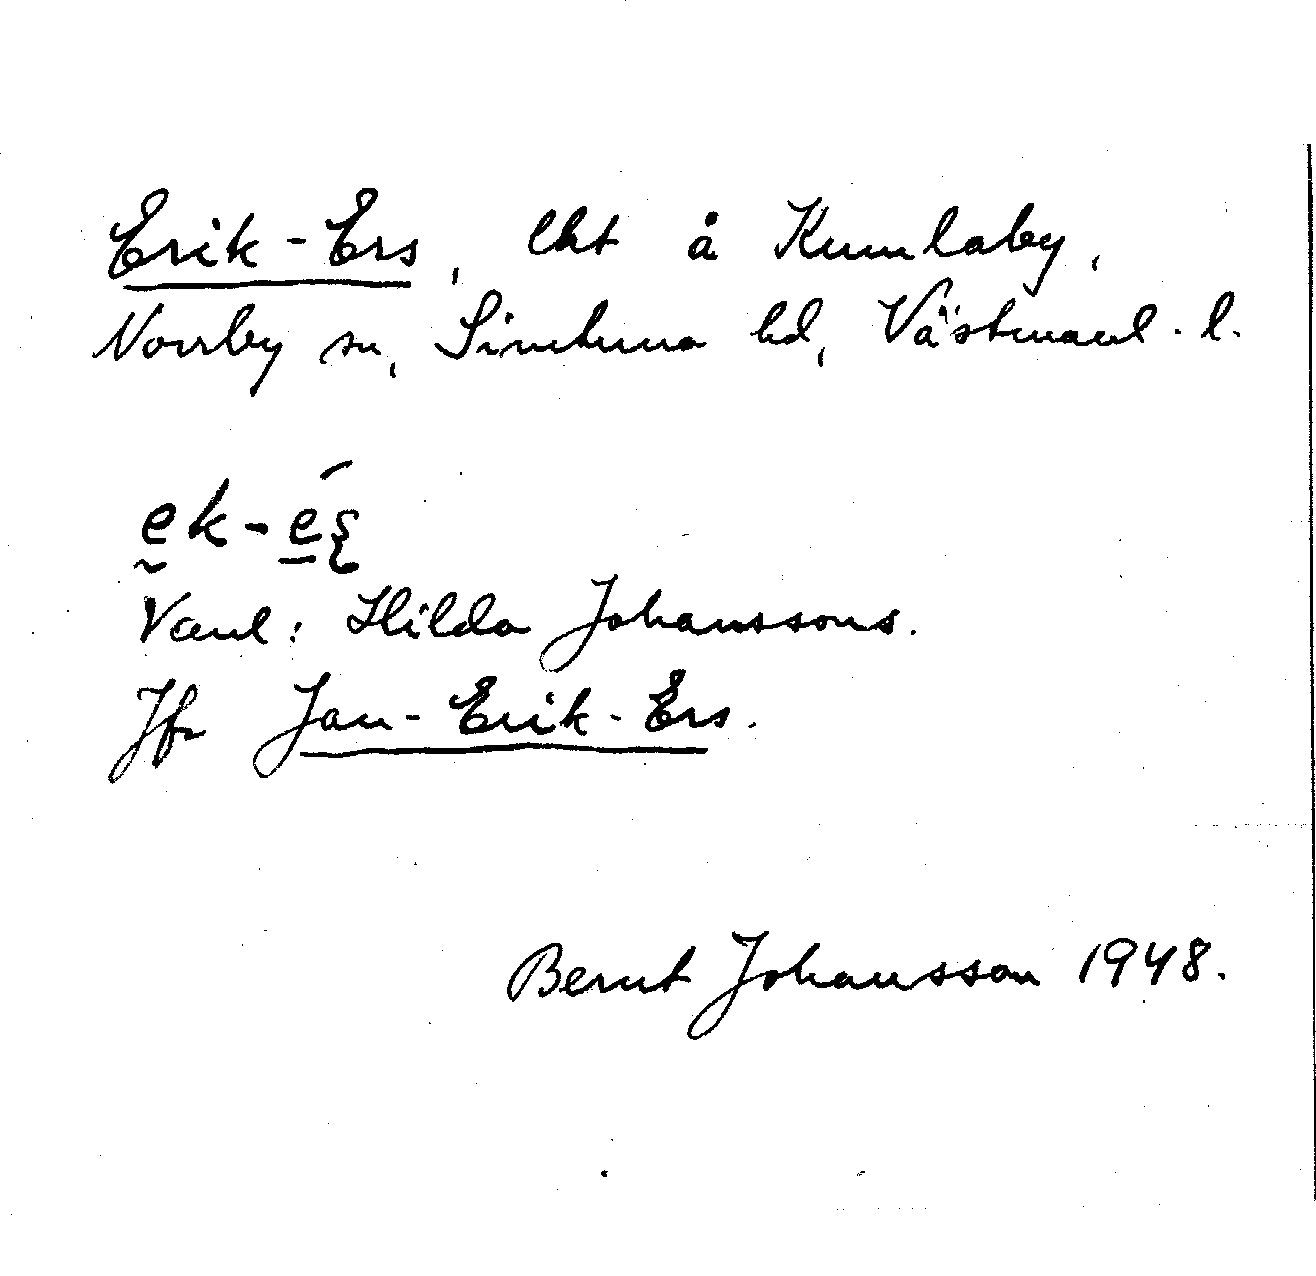 Erik-Ers, lht å Kumlaby,
Norrby sn, Simtuna hd, Västmanl. l.
ek-és
Vanl: Hilda Johanssons.
Jfr Jan-Erik-Ers.
Bernt Johansson 1948.